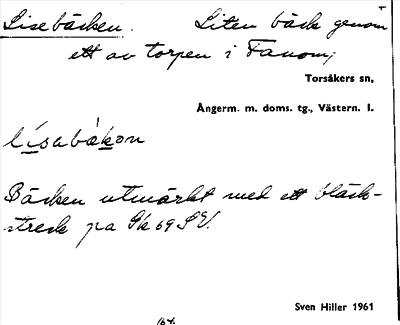 Lisebäcken. Liten bäck genom
ett av torpen i Fanom;
Torsåkers sn,
Ångerm. m. doms. tg., Västern. l.
lísabäkon
Bäcken utmärkt med ett bläck-
streck på Gk 69 SV.
Sven Hiller 1961